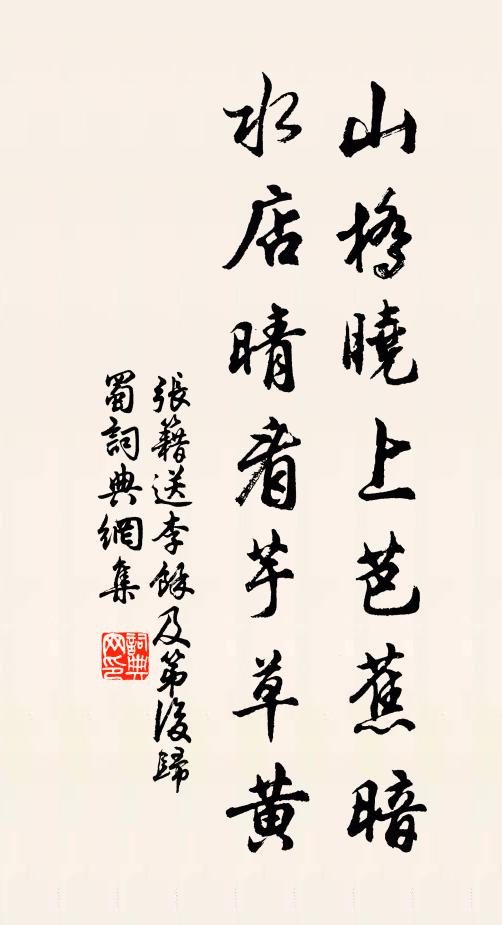 山橋曉上芭蕉暗
水店晴看芋草黄
張籍送李餘及第後歸
蜀詞典網集
詞典
网印